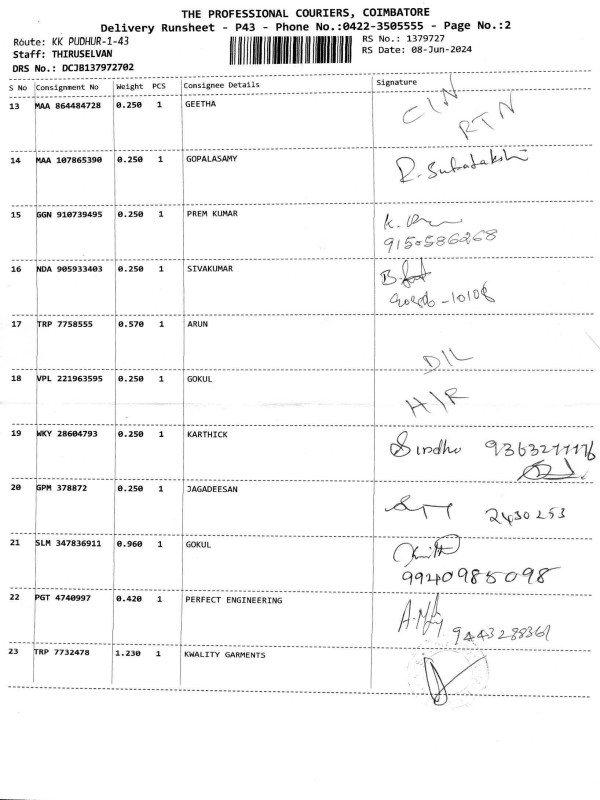 THE PROFESSIONAL COURIERS, COIMBATORE
Delivery Runsheet - P43 - Phone No.:0422-3505555 - Page No.:2
Route: KK PUDHUR-1-43 RS No.: 1379727
Staff: THIRUSELVAN RS Date: 08-Jun-2024
DRS No.: DCJB137972702
S No Consignment No Weight PCS Consignee Details Signature
13 MAA 864484728 0.250 1 GEETHA CIN
RTN
14 MAA 107865390 0.250 1 GOPALASAMY
15 GGN 910739495 0.250 1 PREM KUMAR
9150586268
16 NDA 905933403 0.250 1 SIVAKUMAR
17 TRP 7758555 0.570 1 ARUN D/L
18 VPL 221963595 0.250 1 GOKUL H/R
19 WKY 28604793 0.250 1 KARTHICK Sindhu
20 GPM 378872 0.250 1 JAGADEESAN 2430253
21 SLM 347836911 0.960 1 GOKUL
9940985098
22 PGT 4740997 0.420 1 PERFECT ENGINEERING
23 TRP 7732478 1.230 1 KWALITY GARMENTS